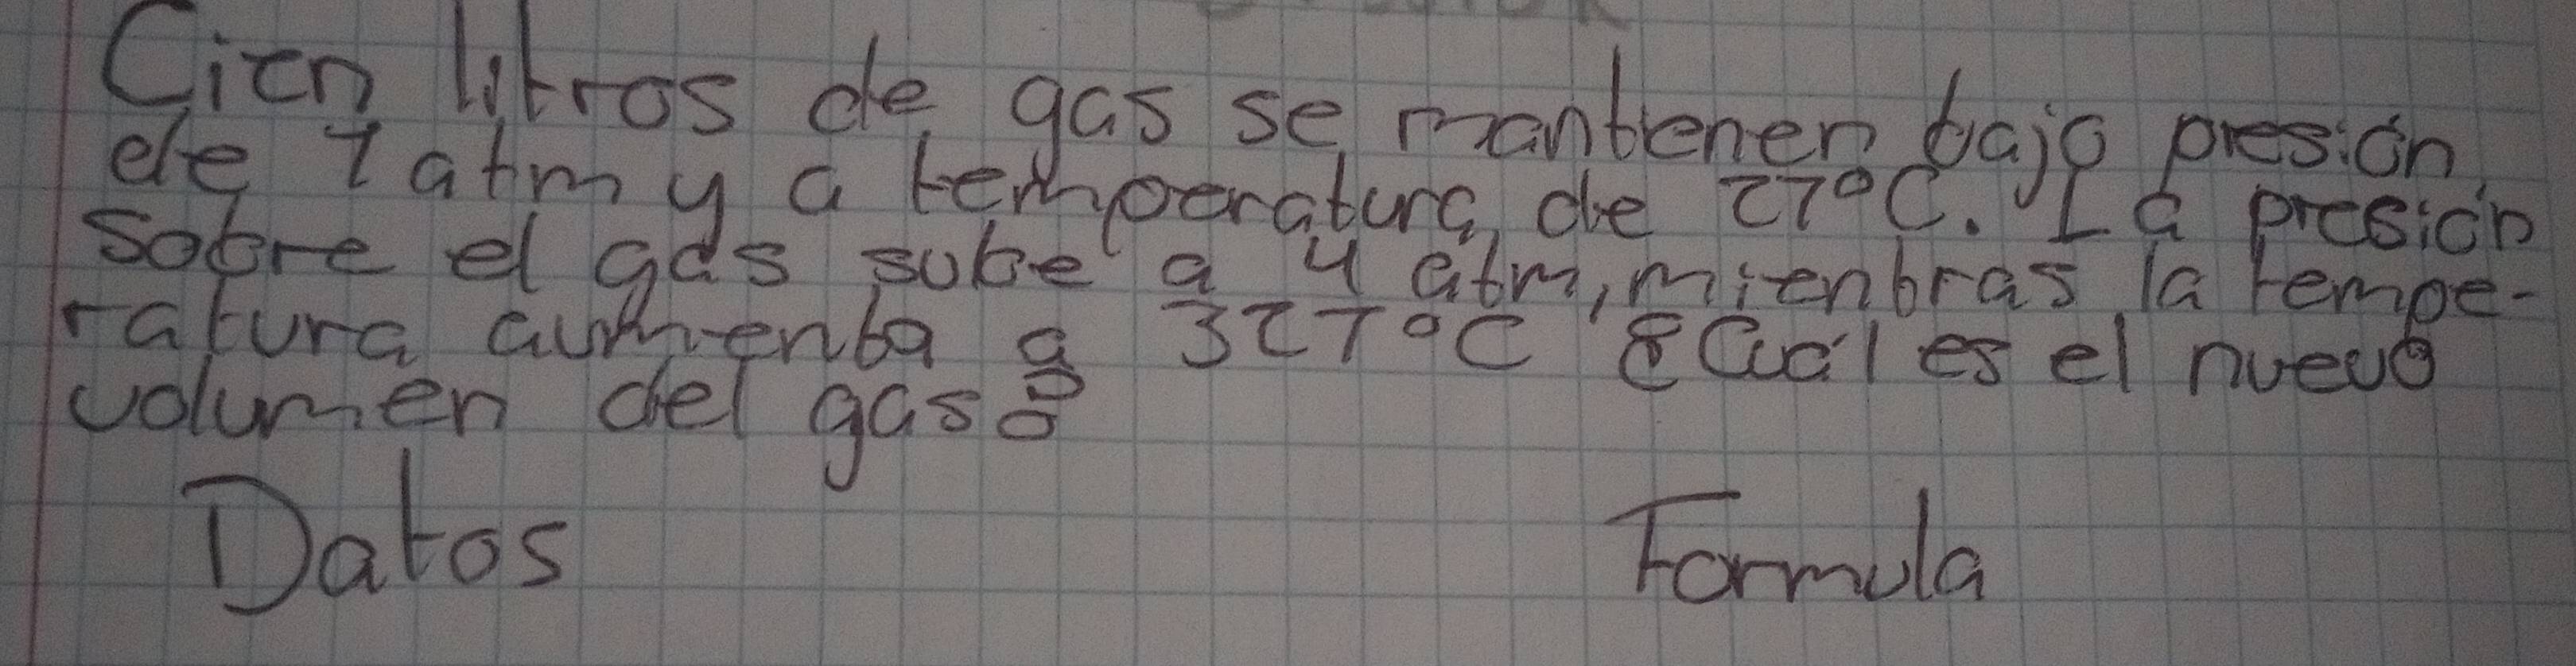 Cien litros de gas se mantienen bajo presión
de 1 atm y a temperatura de 27°C. La presión
sobre el gas sube a 4 atm, mientras la tempe-
ratura aumenta a 327°C ¿Cuál es el nuevo
volumen del gas?
Datos Formula